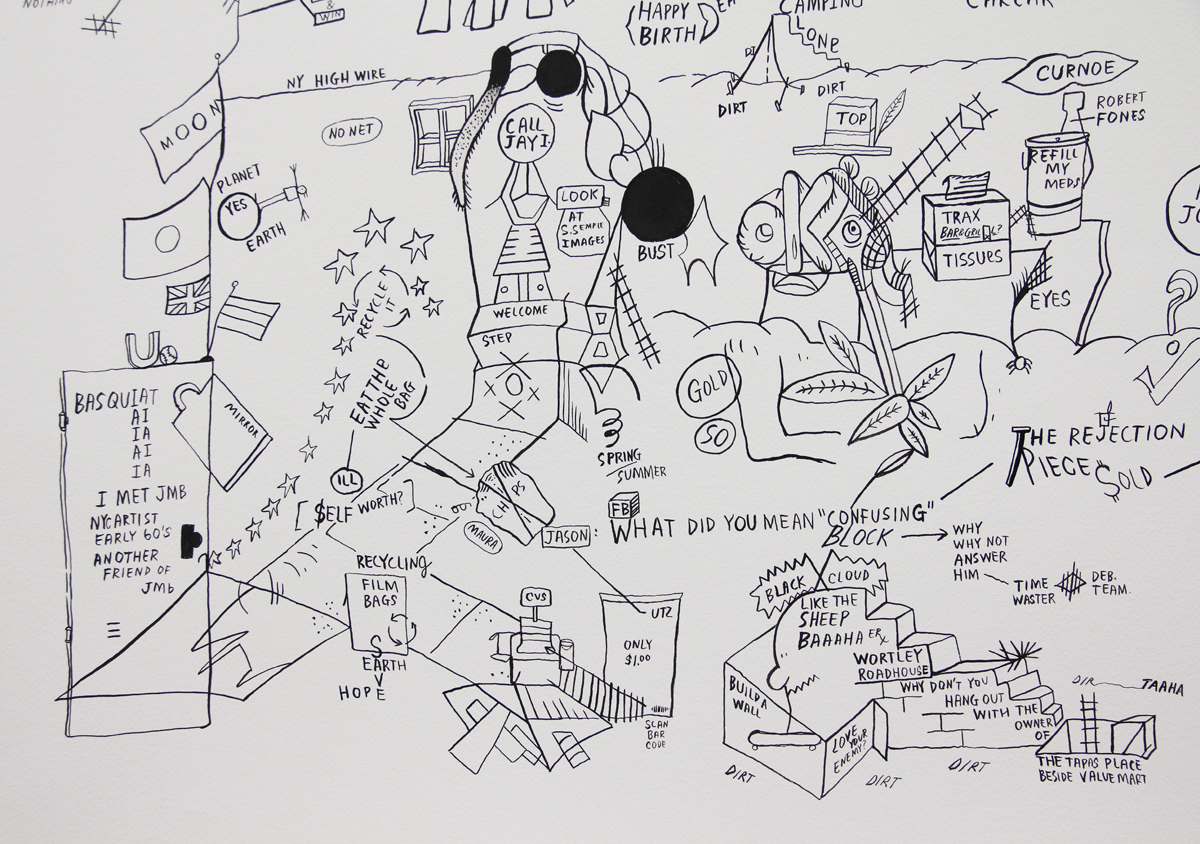 NOTHING
&
WIN
HAPPY
BIRTH
CAMPING
LONE
DIRT
DIRT
CURNOE
ROBERT
FONES
NY HIGH WIRE
NO NET
MOON
PLANET
YES
EARTH
CALL
JAY I.
LOOK
AT
S. SEMPLE
IMAGES
BUST
TOP
REFILL
MY
MEDS
TRAX
TISSUES
EYES
WELCOME
STEP
RECYCLE
IT
EAT THE
WHOLE
BAG
ILL
$ELF WORTH?
GOLD
SO
SPRING
SUMMER
MIRROR
U
BASQUIAT
AI
IA
AI
IA
I MET JMB
NYC ARTIST
EARLY 60'S
ANOTHER
FRIEND OF
JMb
THE REJECTION
PIECE SOLD
FB
MAURA
JASON: WHAT DID YOU MEAN "CONFUSING"
BLOCK
WHY
WHY NOT
ANSWER
HIM
TIME
WASTER
DEB.
TEAM.
RECYCLING
FILM
BAGS
S
EARTH
V
HOPE
CVS
UTZ
ONLY
$1.00
SCAN
BAR
CODE
BLACK CLOUD
LIKE THE
SHEEP
BAAAHA
WORTLEY
ROADHOUSE
WHY DON'T YOU
HANG OUT
WITH THE
OWNER
OF
THE TAPAS PLACE
BESIDE VALUE MART
BUILD A
WALL
LOVE
YOUR
ENEMY?
DIRT
DIRT
DIRT
DIR
TAAHA